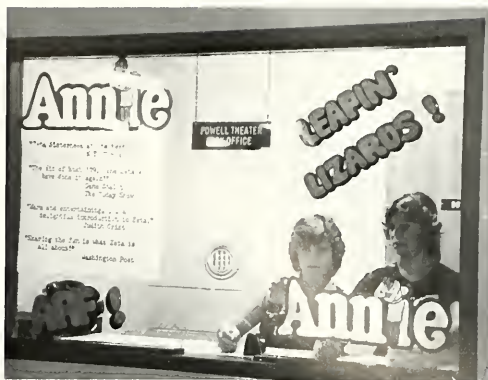 Annie
POWELL THEATER
OFFICE
LEAPIN'
LIZARDS!
"The Hit of Rust '79,
have done it again"
Gene Shalit
The Today Show
"Warm and entertaining,
delightful introduction to Zeta."
Judith Crist
"Sharing the fun is what Zeta is
all about"
Washington Post
ARF!
Annie